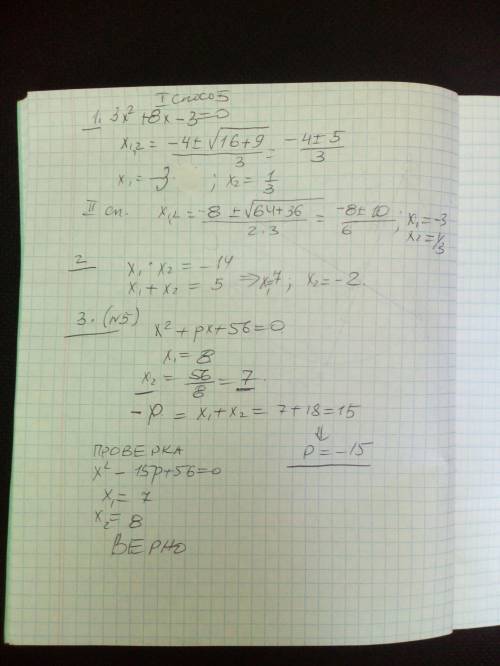 I способ
1. 3x² + 8x - 3 = 0
x₁,₂ = (-4 ± √(16 + 9))/3 = (-4 ± 5)/3
x₁ = -3 ; x₂ = 1/3
II сп. x₁,₂ = (-8 ± √(64 + 36))/(2·3) = (-8 ± 10)/6 ; x₁ = -3
x₂ = 1/3
2 x₁ · x₂ = -14
x₁ + x₂ = 5 ⇒ x₁ = 7 ; x₂ = -2.
3. (N5)
x² + px + 56 = 0
x₁ = 8
x₂ = 56/8 = 7
-p = x₁ + x₂ = 7 + 18 = 15
⇓
p = -15
ПРОВЕРКА
x² - 15p + 56 = 0
x₁ = 7
x₂ = 8
ВЕРНО